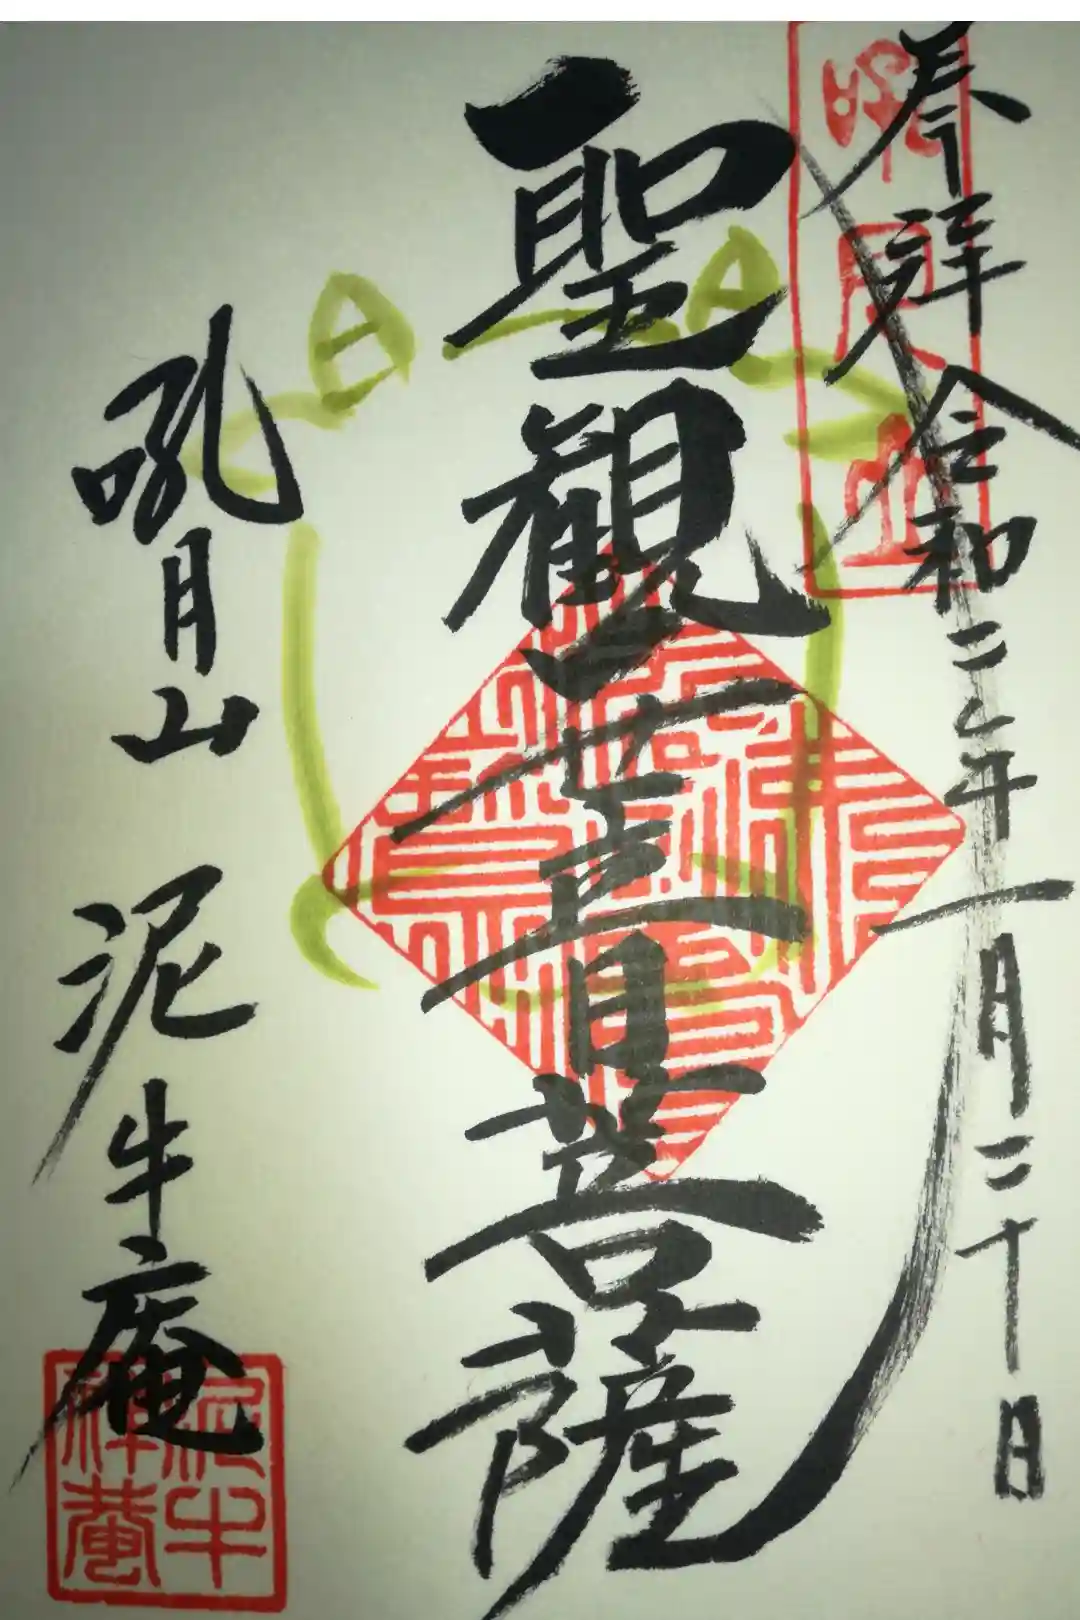 奉拝 令和二年一月二十日
聖観世音菩薩
吼月山 泥牛庵
吼月山